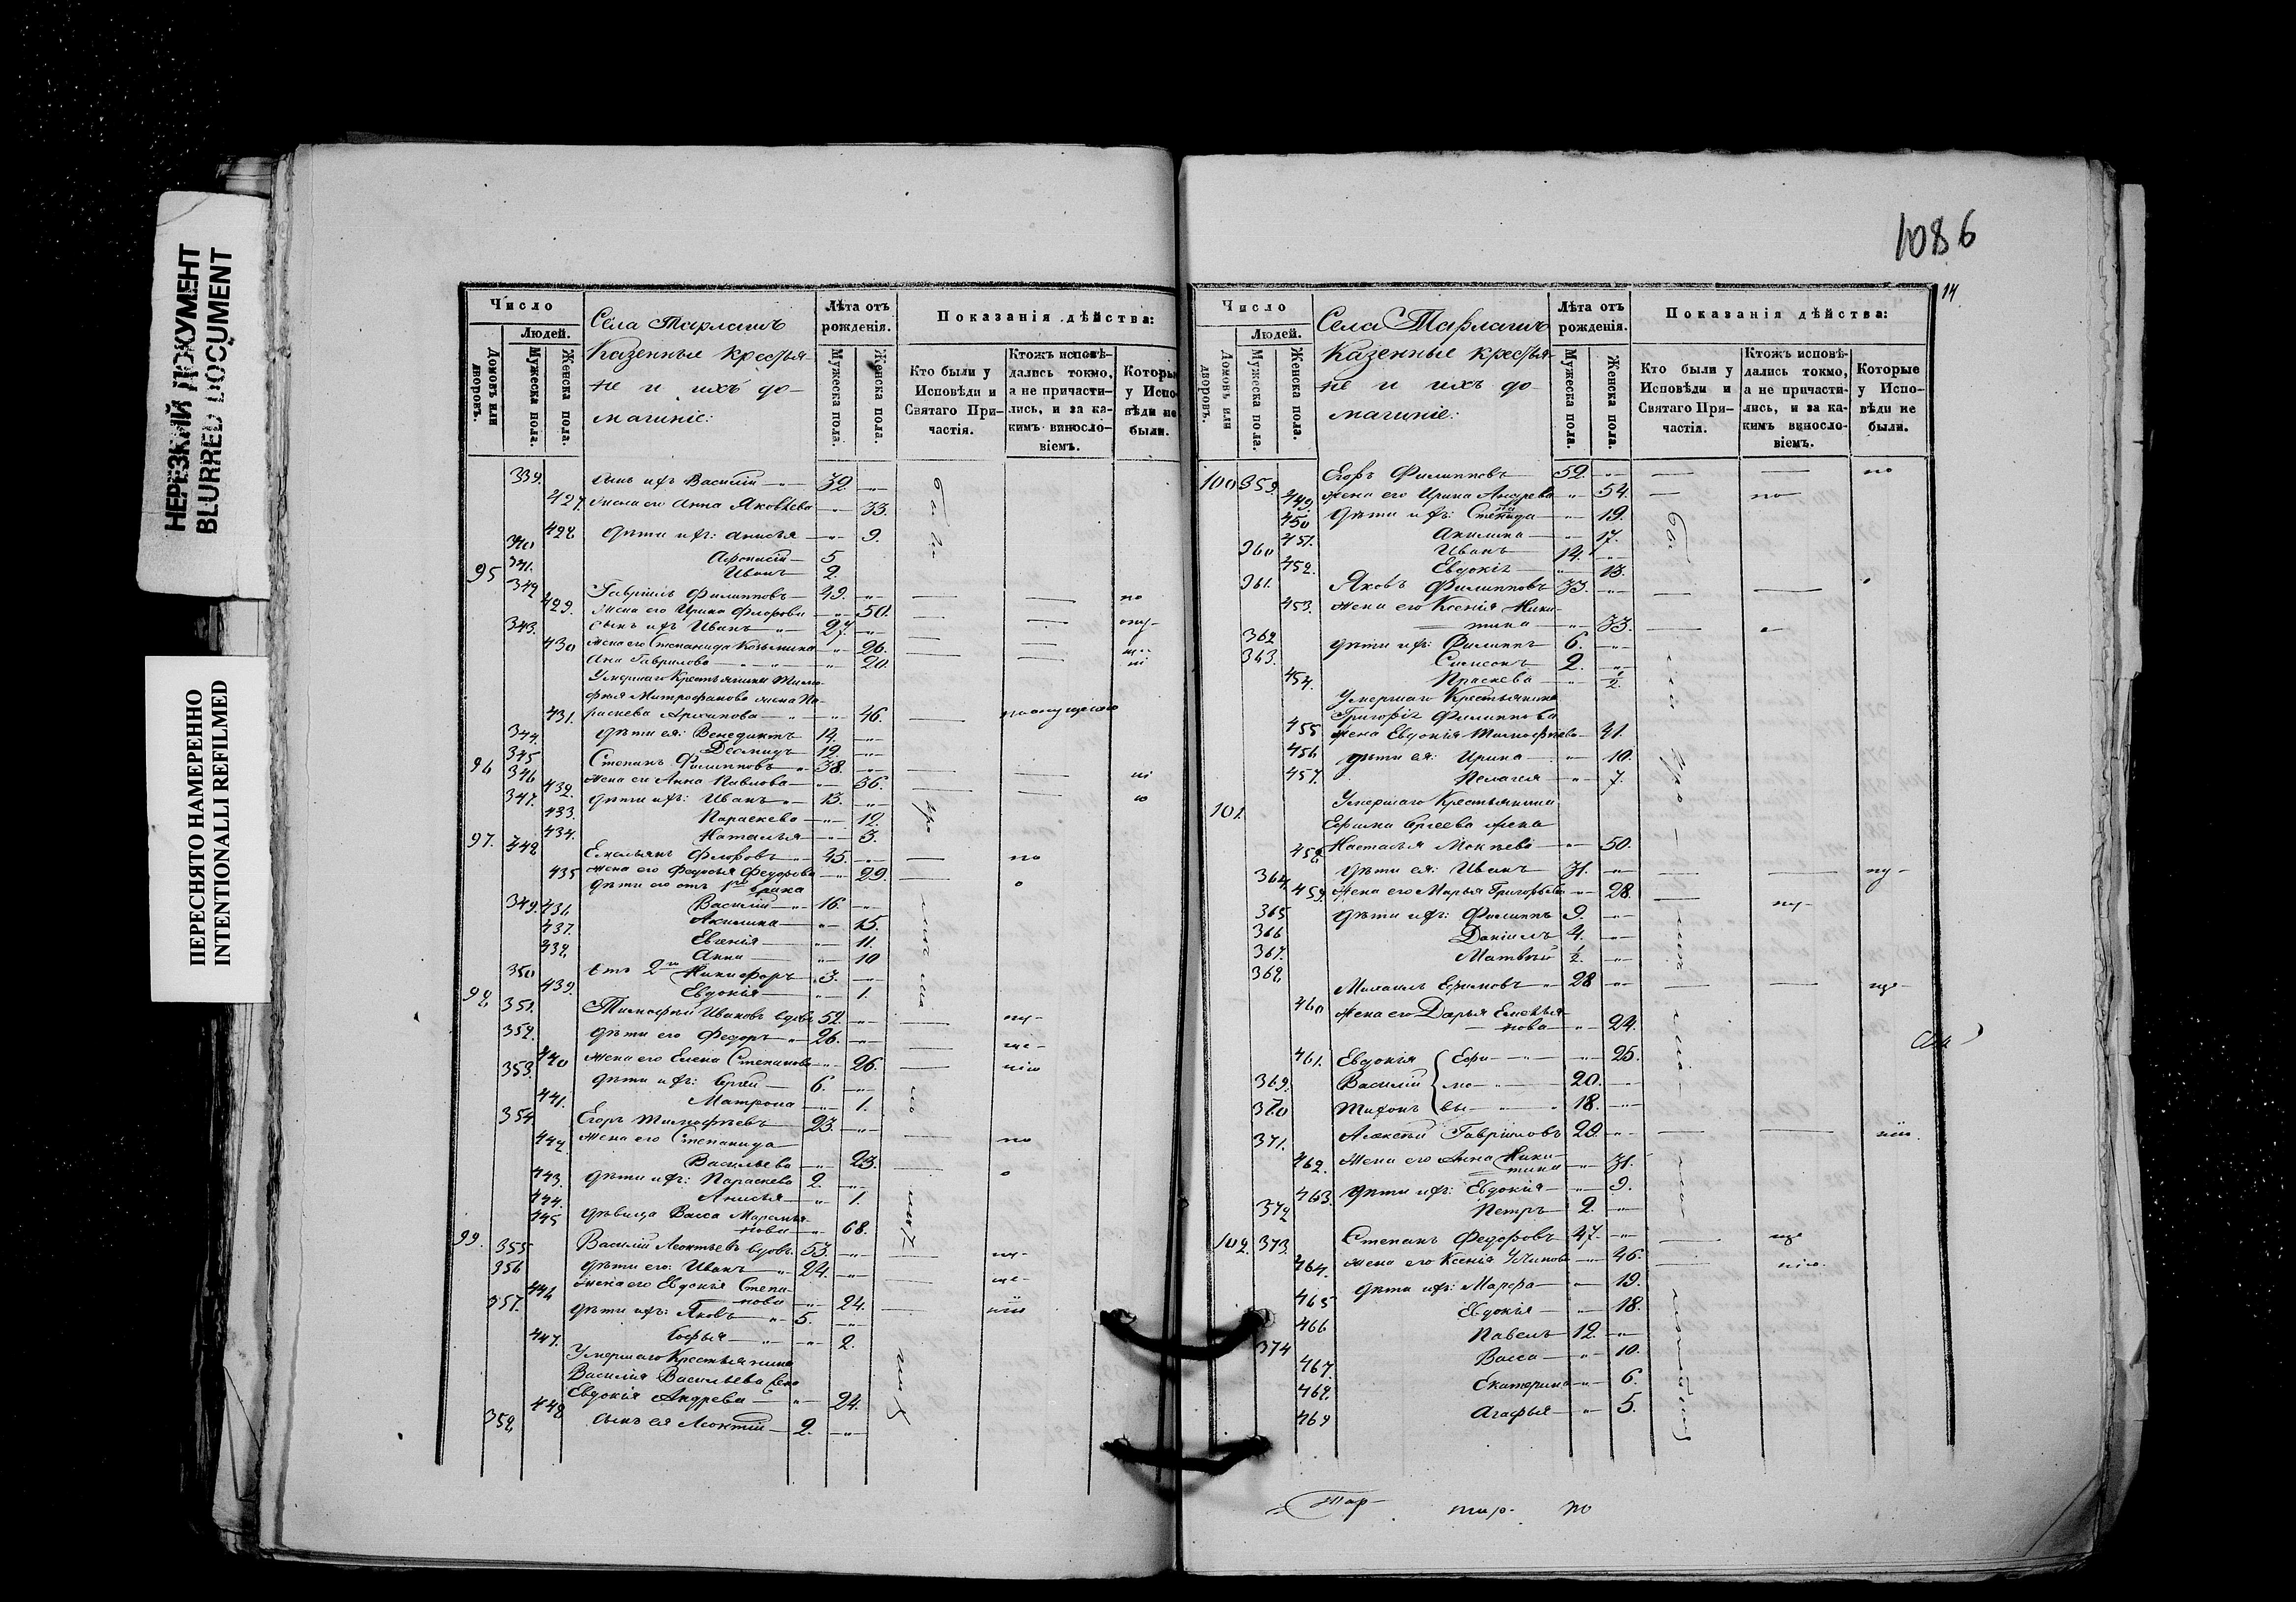 НЕРЕЗКИЙ ДОКУМЕНТ
BLURRED DOCUMENT
ПЕРЕСНЯТО НАМЕРЕННО
INTENTIONALLI REFILMED
Число
Людей.
Домовъ или дворовъ.
Мужеска пола.
Женска пола.
Села
Казенные крестья-
не и ихъ до-
машніе:
Лѣта отъ
рожденія.
Мужеска пола.
Женска пола.
Показанія дѣйства:
Кто были у
Исповѣди и
Святаго При-
частія.
Ктожъ исповѣ-
дались токмо,
а не причасти-
лись, и за ка-
кимъ винносло-
віемъ.
Которы
у Испо-
вѣди не
были.
339. сынъ ихъ Василій 32.
427. жена его Анна Яковлева 33.
428 дѣти ихъ: Анисья 9.
340 5
341. Иванъ 2.
95 342 Гавріилъ Филипповъ 49.
429. жена его Ирина Флорова 50.
343. сынъ ихъ Иванъ 27.
430 жена его Степанида Козьмина 26.
Гаврилова 20.
Умершаго Крестьянина Тимо-
фея Митрофанова жена Па-
431. раскева Архипова 46.
344. дѣти ея: Венедиктъ 14.
345 12.
96 346 Степанъ Филипповъ 38.
432. жена его Анна Павлова 36.
347. дѣти ихъ: Иванъ 13.
433. Параскева 12.
434. Наталья 3.
97. 348 Емельянъ Флоровъ 45.
435 жена его Федосья Федорова 29.
дѣти его отъ 1го брака
349. 436 Василій 16.
437. Акилина 15.
438. Евгенія 11.
Анна 10
350 отъ 2го Никифоръ 3.
439. Евдокія 1.
98 351. Тимофей Ивановъ вдовъ 52.
352. дѣти его Федоръ 26.
440 жена его Елена Степанова 26.
353. дѣти ихъ: Сергей 6.
441. Матрона 1.
354 Егоръ Тимофѣевъ 23.
442 жена его Степанида
Васильева 23.
443. дѣти ихъ: Параскева 2.
444. Анисья 1.
445 дѣвица Васса
68.
99. 355 Василій Леонтьевъ вдовъ 53.
356 дѣти его: Иванъ 24.
446 жена его Евдокія Степа-
нова 24.
357. дѣти ихъ: Яковъ 5.
447. Софья 2.
Умершаго Крестьянина
Василія Васильева жена
448 Евдокія Андрева 24.
358 сынъ ея Леонтій 2.
1086
14.
Число
Людей.
Домовъ или дворовъ.
Мужеска пола.
Женска пола.
Села
Казенные крестья-
не и ихъ до-
машніе:
Лѣта отъ
рожденія.
Мужеска пола.
Женска пола.
Показанія дѣйства:
Кто были у
Исповѣди и
Святаго При-
частія.
Ктожъ исповѣ-
дались токмо,
а не причасти-
лись, и за ка-
кимъ винносло-
віемъ.
Которые
у Испо-
вѣди не
были.
100 359. Егоръ Филипповъ 52.
449. жена его Ирина Андрева 54.
450 дѣти ихъ: 19.
451. Акилина 17.
360 Иванъ 14.
452. Евдокія 13.
361. Яковъ Филипповъ 33.
453. жена его Ксенія Ники-
тина 33.
362 дѣти ихъ: Филиппъ 6.
363. Симеонъ 2.
454. Праскева ½.
Умершаго Крестьянина
Григорія Филиппова
455 жена Евдокія Тимофеева 41.
456 дѣти ея: Ирина 10.
457. Пелагея 7.
101. Умершаго Крестьянина
Ефима Сергеева жена
458 Настасья 50.
364. дѣти ея: Иванъ 31.
459. жена его Марья Григорьева 28.
365 дѣти ихъ: Филиппъ 9.
366 Даніилъ 4.
367. Матвѣй ½.
368 Михаилъ Ефимовъ 28
460 жена его Дарья Емелья-
нова 24.
461. Евдокія Ефи- 25.
369. Василій мо- 20.
370 Тихонъ вы 18.
371. Алексѣй Гавріиловъ 28.
462. жена его Анна Ники-
тина 31.
463. дѣти ихъ: Евдокія 9.
372 Петръ 2.
102. 373. Степанъ Федоровъ 47.
464. жена его Ксенія 46.
465 дѣти ихъ: Марфа 19.
466 Евдокія 18.
374 Павелъ 12.
467. Васса 10.
468. Екатерина 6.
469 Агафья 5.